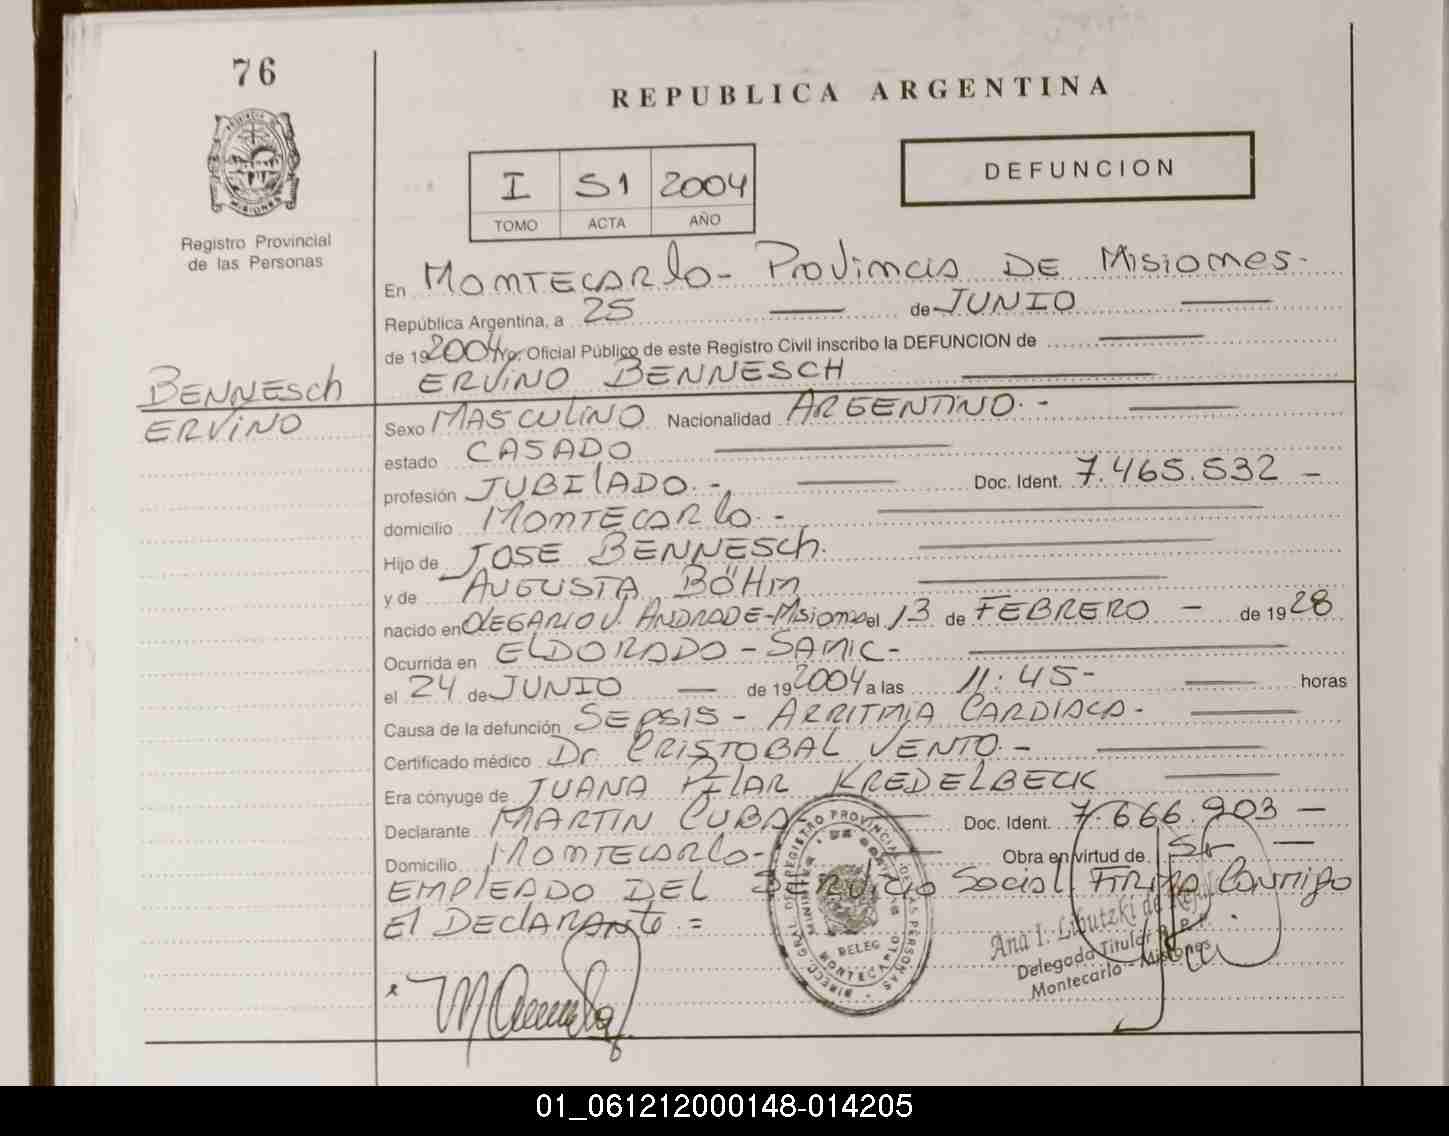 76
REPUBLICA ARGENTINA
DEFUNCION
I 51 2004
TOMO ACTA AÑO
Registro Provincial
de las Personas
En MONTECARLO - PROVINCIA DE MISIONES.-
República Argentina, a 25 de JUNIO
de 19 2004 yo, Oficial Público de este Registro Civil inscribo la DEFUNCION de
BENNESCH
ERVINO
ERVINO BENNESCH
Sexo MASCULINO Nacionalidad ARGENTINO.-
estado CASADO
profesión JUBILADO.- Doc. Ident. 7.465.532 -
domicilio MONTECARLO.-
Hijo de JOSE BENNESCH.
y de AUGUSTA BÖHM
nacido en OLEGARIO V. ANDRADE-MISIONES el 13 de FEBRERO - de 19 28
Ocurrida en ELDORADO - SAMIC-
el 24 de JUNIO de 19 2004 a las 11:45- horas
Causa de la defunción SEPSIS - ARRITMIA CARDIACA.-
Certificado médico Dr. CRISTOBAL VENTO.-
Era cónyuge de JUANA PILAR KREDELBECK
Declarante MARTIN CUBA Doc. Ident. 7.666.903 -
Domicilio MONTECARLO- Obra en virtud de Ser
EMPLEADO DEL SERVICIO SOCIAL. FIRMA CONMIGO
EL DECLARANTE =
DIREC. GRAL. DE REGISTRO PROVINCIAL DE LAS PERSONAS
DELEG.
MONTECARLO
Ana I. Libutzki de
Delegada Titular R.P.P.
Montecarlo - Misiones
01_061212000148-014205